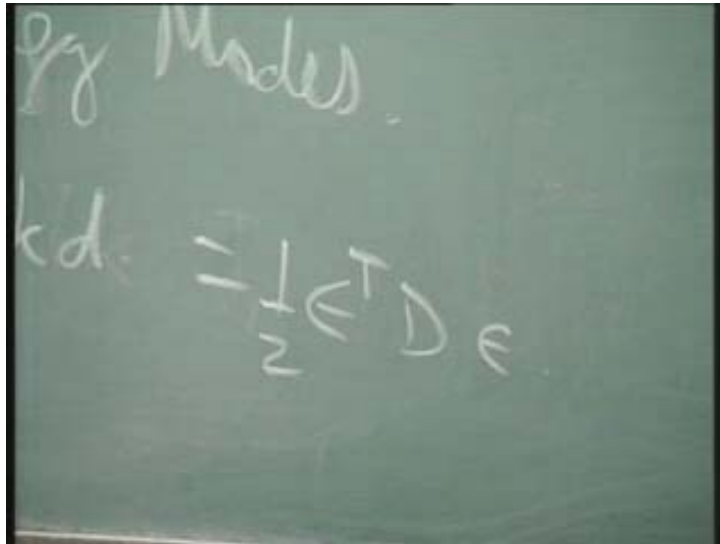 gy Modes.
kd = 1/2 ϵ^T D ϵ